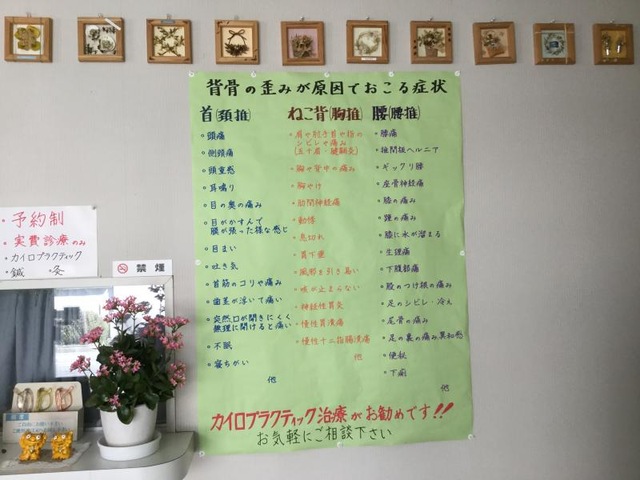 背骨の歪みが原因でおこる症状
首(頚推)
・頭痛
・側頭痛
・頭重感
・耳鳴り
・目の奥の痛み
・目がかすんで
膜が張った様な感じ
・目まい
・吐き気
・首筋のコリや痛み
・歯茎が浮いて痛い
・突然口が開きにくく
無理に開けると痛い
・不眠
・寝ちがい
他
ねこ背(胸推)
・肩や肘き首や指の
シビレや痛み
(五十肩・腱鞘炎)
・胸や背中の痛み
・胸やけ
・肋間神経痛
・動悸
・息切れ
・胃下垂
・風邪を引き易い
・咳が止まらない
・神経性胃炎
・慢性胃潰瘍
・慢性十二指腸潰瘍
他
腰(腰推)
・腰痛
・椎間板ヘルニア
・ギックリ腰
・座骨神経痛
・膝の痛み
・踵の痛み
・膝に水が溜まる
・生理痛
・下腹部痛
・股のつけ根の痛み
・足のシビレ・冷え
・尾骨の痛み
・足の裏の痛み異和感
・便秘
・下痢
他
カイロプラクティック治療がお勧めです!!
お気軽にご相談下さい
・予約制
・実費診療のみ
・カイロプラクティック
・鍼 ・灸
禁煙